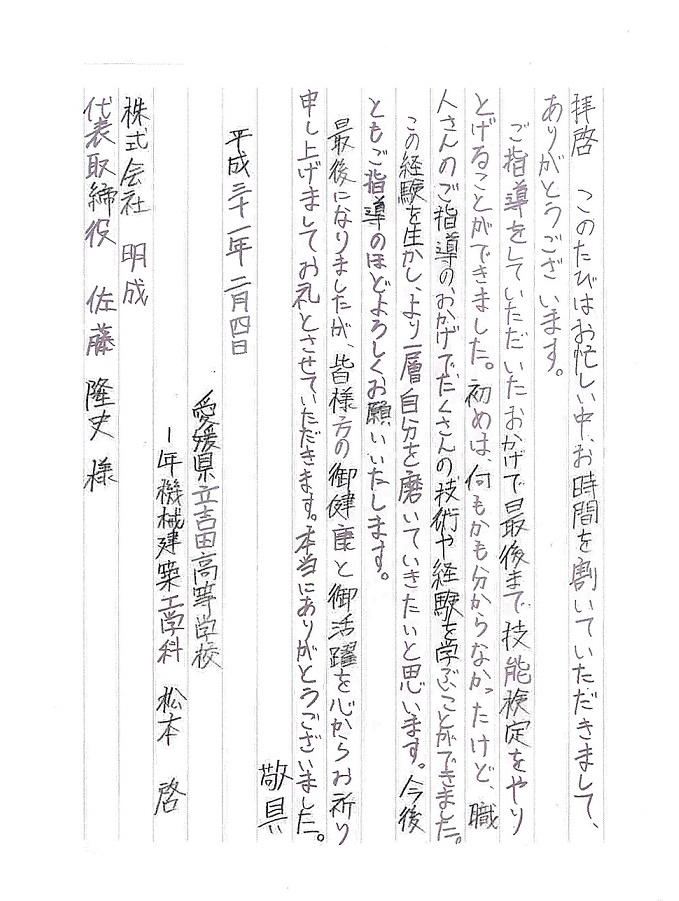 拝啓　このたびはお忙しい中、お時間を割いていただきまして、
ありがとうございます。
ご指導をしていただいたおかげで最後まで技能検定をやり
とげることができました。初めは、何もかも分からなかったけど、職
人さんのご指導のおかげでたくさんの技術や経験を学ぶことができました。
この経験を生かし、より一層自分を磨いていきたいと思います。今後
ともご指導のほどよろしくお願いいたします。
最後になりましたが、皆様方の御健康と御活躍を心からお祈り
申し上げましてお礼とさせていただきます。本当にありがとうございました。
敬具
平成三十一年二月四日
愛媛県立吉田高等学校
1年機械建築工学科　松本　啓
株式会社　明成
代表取締役　佐藤　隆史　様